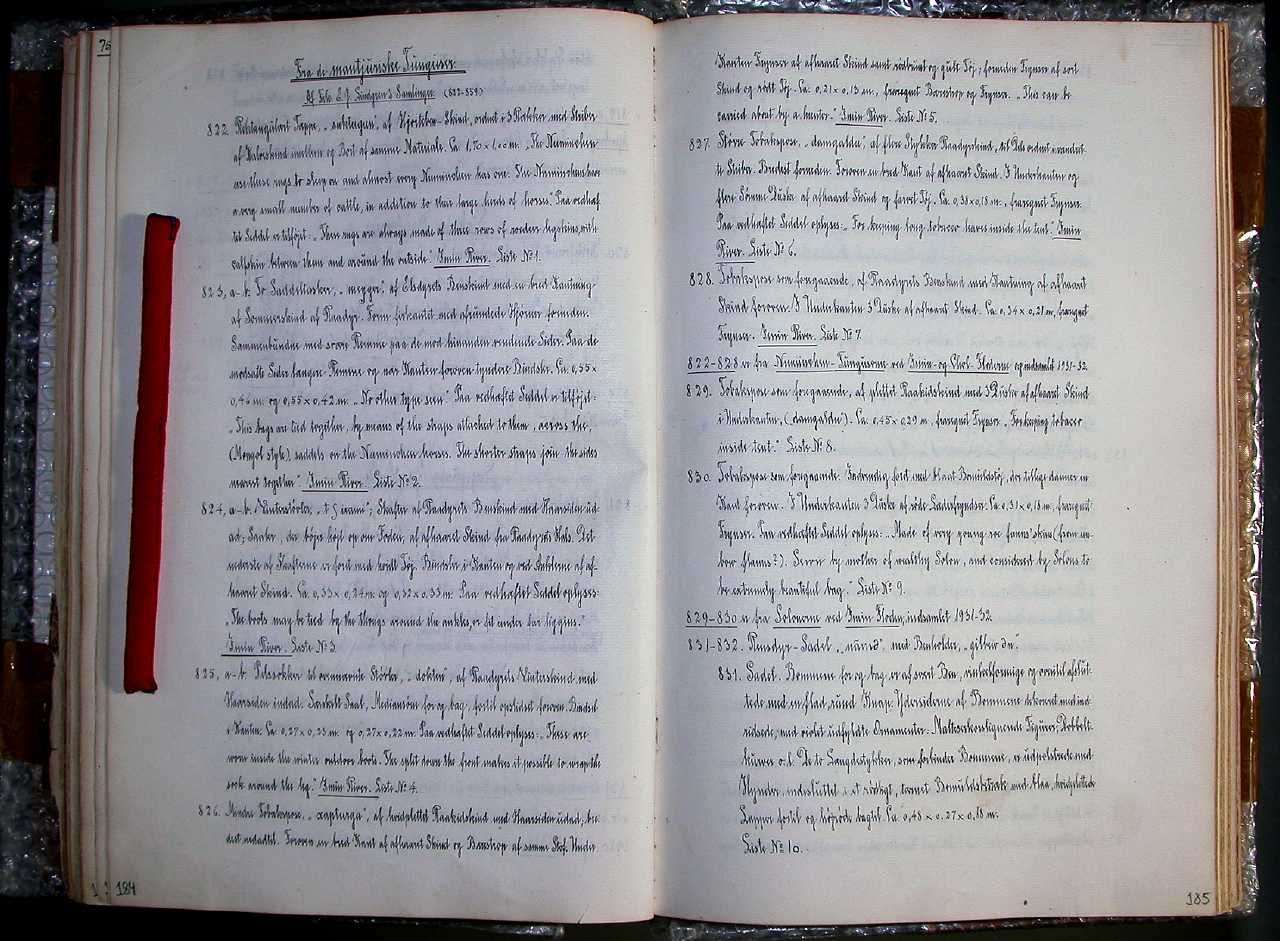 75
Fra de mantjuriske Tunguser.
Af Frk. E. J. Lindgrens Samlinger (822-859)
822. Rektangulært Tæppe, af Hjorteben-Skind, ordnet i 3 Rækker med Striber
af Kalveskind imellem og Bort af samme Materiale. Ca. 1,70 x 1,00 m. „The Numinchen
use these rugs to sleep on and almost every Numinchen has one. The Numinchens have
a very small number of cattle, in addition to their large herds of horses." Paa vedhæf-
tet Seddel er tilføjet: „These rugs are always made of three rows of roedeer leg skins, with
calfskin between them and around the outside." Imin River. Liste No 1.
823, a-b. To Saddeltasker, af Elsdyrets Benskind med en bred Kantning
af Sommerskind af Raadyr. Form firkantet med afrundede Hjørner forneden.
Sammenbundne med svære Remme paa de mod hinanden vendende Sider. Paa de
modsatte Sider længere Remme og nær Kanten foroven tyndere Bindsler. Ca. 0,55 x
0,46 m. og 0,55 x 0,42 m. „No other type seen". Paa vedhæftet Seddel er tilføjet:
„This bags are tied together, by means of the straps attached to them, across the,
(Mongol style), saddels on the Numinchen horses. The shorter straps join the sides
nearest together". Imin River. Liste No 2.
824, a-b. Vinterstøvler, Skafter af Raadyrets Benskind med Haarsiden ud-
ad; Saaler, der bøjes højt op om Foden, af afhaaret Skind fra Raadyrets Hals. Det
inderste af Skafterne er foret med hvidt Tøj. Bindsler i Kanten og ved Anklerne af af-
haaret Skind. Ca. 0,33 x 0,24 m. og 0,32 x 0,33 m. Paa vedhæftet Seddel oplyses:
„The boots may be tied by the thongs around the ankles, or fit under fur liggins."
Imin River. Liste No 3.
825, a-b. Pelssokker til ovennævnte Støvler, „doktun", af Raadyrets Vinterskind med
Haarsiden indad. Særskilt Saal, Mediansøm for og bag, fortil opslidset foroven. Bændsel
i Kanten. Ca. 0,27 x 0,23 m. og 0,27 x 0,22 m. Paa vedhæftet Seddel oplyses: „These are
worn inside the winter outdoor boots. The split down the front makes it possible to wrap the
sock around the leg." Imin River. Liste No 4.
826. Mindre Tobakspose, „kapturga", af hvidplettet Raakidskind med Haarsiden udad, bre-
dest nedadtil. Foroven en bred Kant af afhaaret Skind og Bærestrop af samme Stof. Under-
184
Kanten Frynser af afhaaret Skind samt rødbrunt og gult Tøj, forneden Frynser af sort
Skind og rødt Tøj. Ca. 0,21 x 0,13 m., fraregnet Bærestrop og Frynser. „This can be
carried about by a hunter." Imin River. Liste No 5.
827. Større Tobakspose, „damgaldu", af flere Stykker Raadyrskind, til Dels ordnet i vandret-
te Striber. Bredest forneden. Foroven en bred Kant af afhaaret Skind. I Underkanten og
flere Sømme Duske af afhaaret Skind og farvet Tøj. Ca. 0,38 x 0,18 m., fraregnet Frynser.
Paa vedhæftet Seddel oplyses: „For keeping long tobacco leaves inside the tent." Imin
River. Liste No 6.
828. Tobakspose som foregaaende, af Raadyrets Benskind med Kantning af afhaaret
Skind foroven. I Underkanten 3 Duske af afhaaret Skind. Ca. 0,34 x 0,21 m., fraregnet
Frynser. Imin River. Liste No 7.
822-828 er fra Numinchen-Tunguserne ved Imin- og Floderne og indsamlet 1931-32.
829. Tobakspose som foregaaende, af plettet Raakidskind med 3 Duske af afhaaret Skind
i Underkanten, (damgaldu). Ca. 0,45 x 0,29 m., fraregnet Frynser. „For keeping tobacco
inside tent." Liste No 8.
830. Tobakspose som foregaaende. Indvendig foret med blaat Bomuldstøj, der tillige danner en
Kant foroven. I Underkanten 3 Duske af røde Læderfrynser. Ca. 0,31 x 0,18 m., fraregnet
Frynser. Paa vedhæftet Seddel oplyses: „Made of very young roe fawns' skin (from un-
born fawns?). Sewn by mother of wealthy Solon, and considered by Solons to
be extremely beautiful bag." Liste No 9.
829-830 er fra Solonerne ved Imin Floden, indsamlet 1931-32.
831-832. Rensdyr-Sadel, med Benholder,
831. Sadel. Bommene for og bag er af svært Ben, vinkelformige og oventil afslut-
tede med en flad, rund Knap. Ydersiderne af Bommene dekoreret med ind-
ridsede, med violet udfyldte Ornamenter: Malteserkorslignende Figurer, Dobbelt-
kurver o.l. De to Længdestykker, som forbinder Bommene, er udpolstrede med
Hynder, indesluttet i et rødligt, tærnet Bomuldsbetræk med blaa, hvidplettede
Lapper fortil og højrøde bagtil. Ca. 0,48 x 0,27 x 0,18 m.
Liste No 10.
185